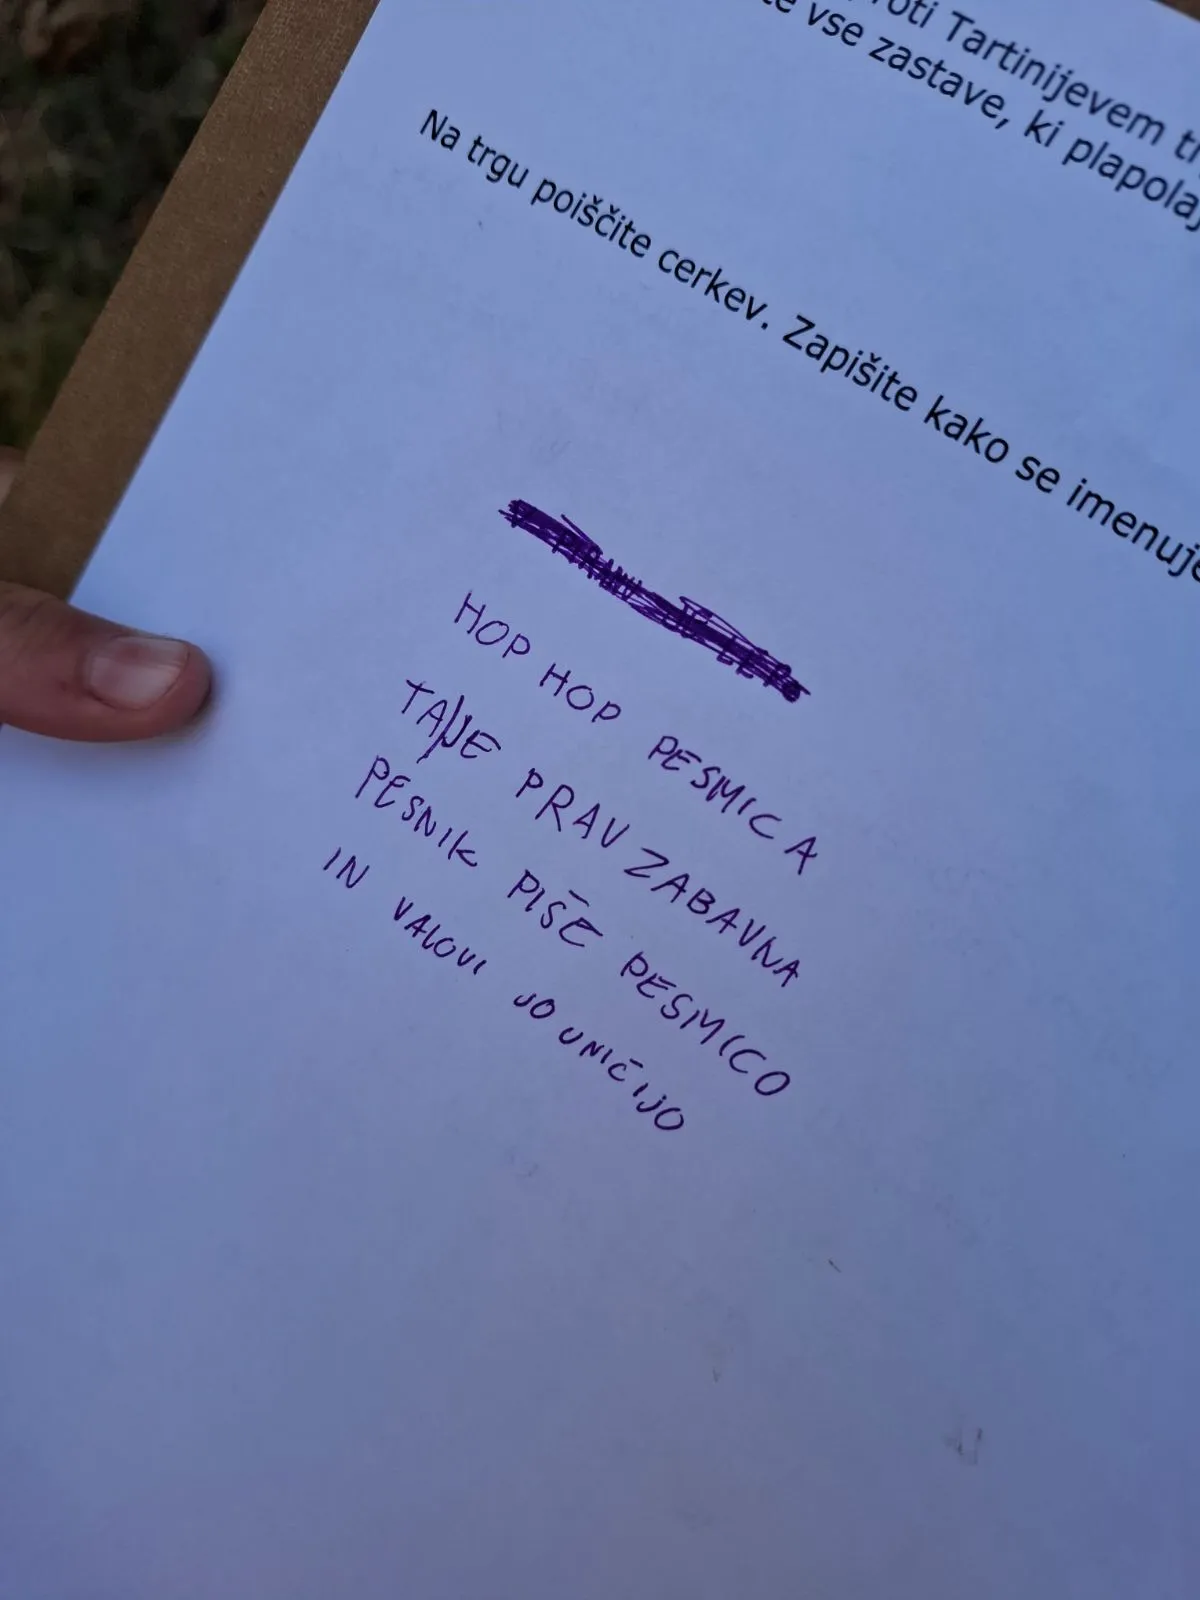 Tartinijevem
vse zastave, ki
Na trgu poiščite cerkev. Zapišite kako se imenuje
HOP HOP PESMICA
TA JE PRAV ZABAVNA
PESNIK PIŠE PESMICO
IN VALOVI JO UNIČIJO